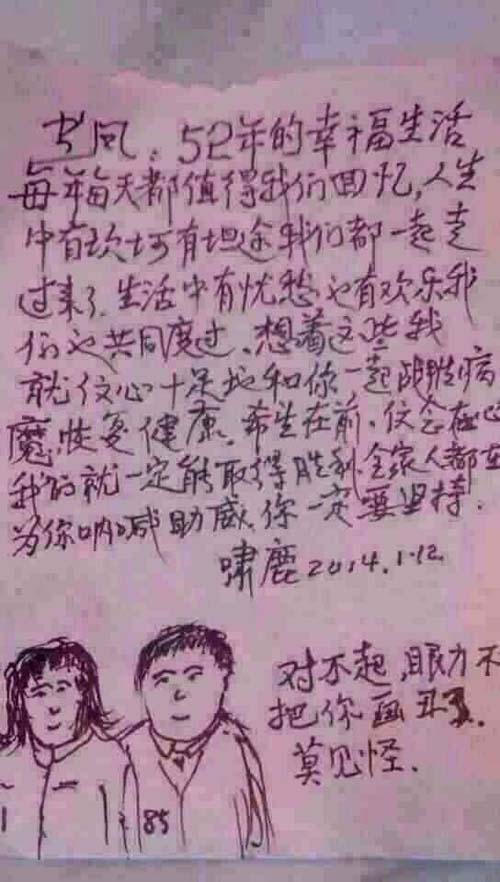 风:52年的幸福生活
每年每天都值得我们回忆,人生
中有坎坷有坦途我们都一起走
过来了.生活中有忧愁也有欢乐我
们也共同度过、想着这些我
就信心十足地和你一起战胜病
魔,恢复健康。希望在前,信念在心
我们就一定能取得胜利.全家人都在
为你呐喊助威.你一定要坚持.
啸鹿2014.1.12
对不起,眼力不
把你画丑了.
莫见怪.
85